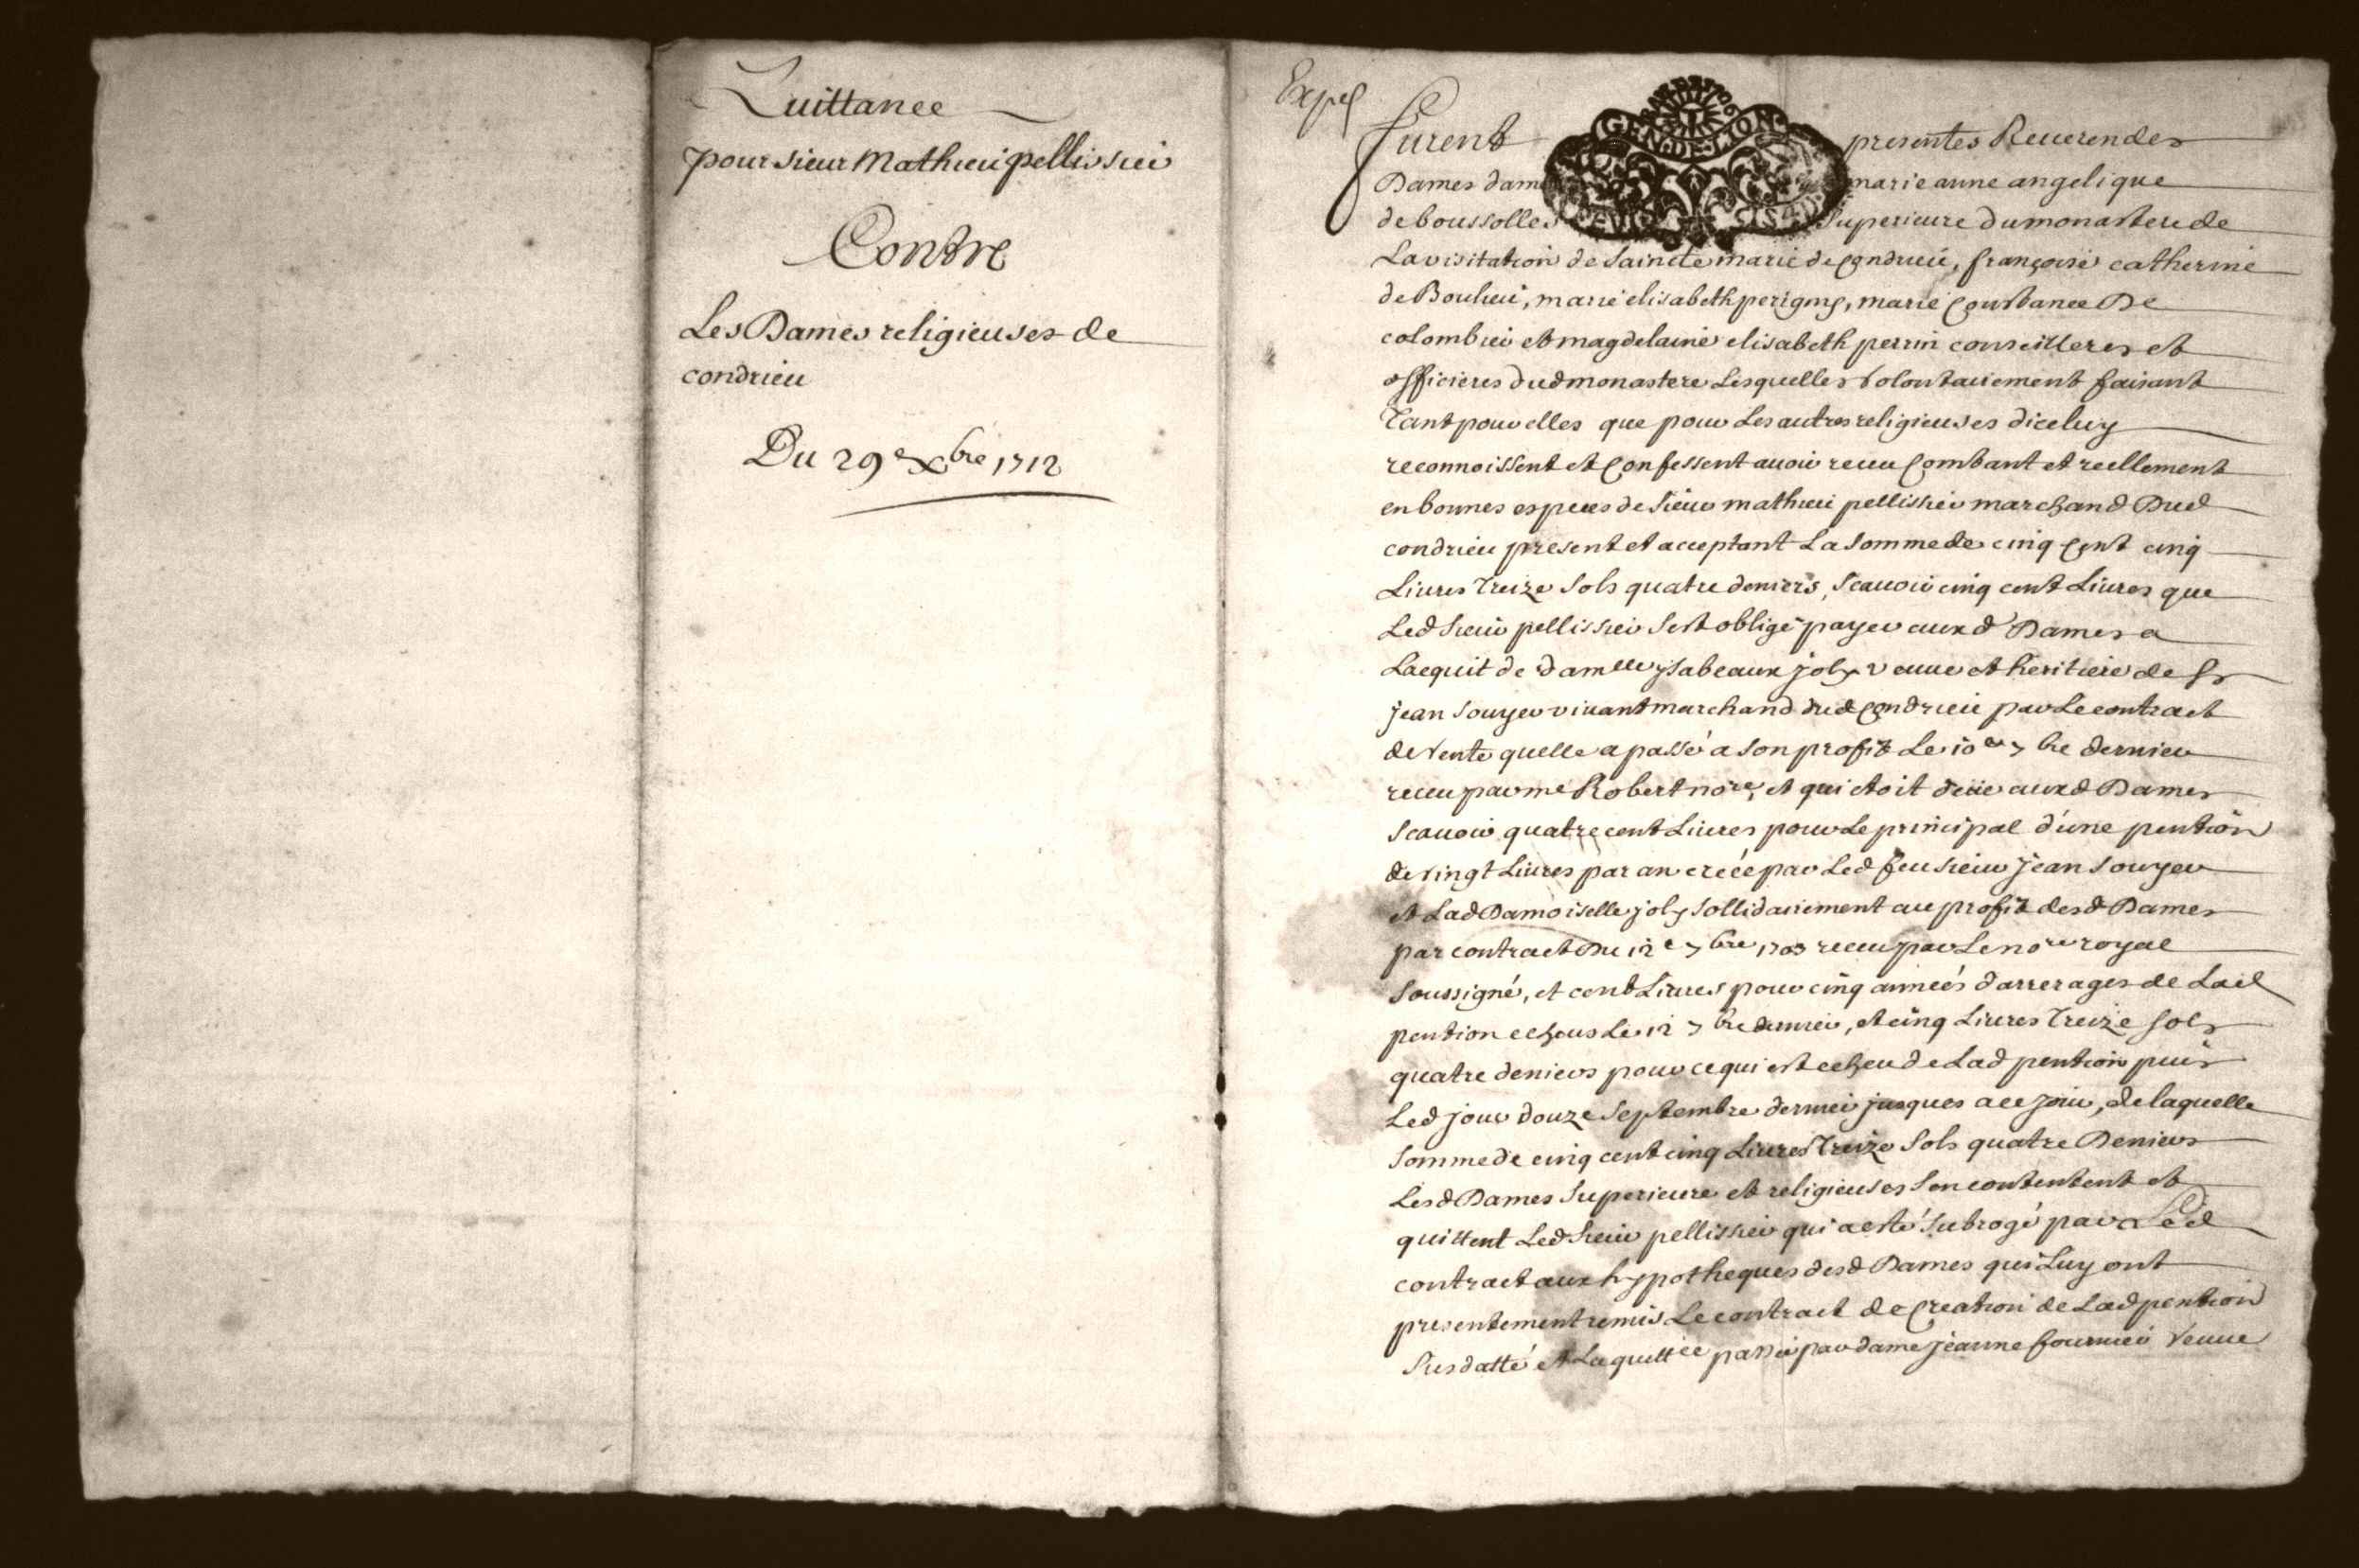 Quittance
pour sieur Mathieu pellissier
Contre
Les Dames religieuses de
condrieu
Du 29e Xbre 1712
Expé
GEN·DE·LION
Furent presentes Reuerendes
Dames dame marie anne angelique
de boussolles Superieure du monastere de
La visitation de Saincte marie de Condrieu, françoise catherine
de Boulieu, marie elisabeth perigny, marie Constance De
colombier et magdelaine elisabeth perrin conseilleres et
officieres dud monastere Lesquelles volontairement faisant
Tant pour elles que pour Les autres religieuses diceluy
reconnoissent et Confessent auoir receu Comtant et reellement
en bonnes especes de Sieur mathieu pellissier marchand Dud
condrieu present et acceptant La Somme de cinq Cent cinq
Liures Treize Sols quatre deniers, Scauoir cinq cent Liures que
Led Sieur pellissier Sest obligé payer auxd Dames a
Lacquit de damlle ysabeaux joly veuue et heritiere de Sr
jean Souyer viuant marchand dud Condrieu par Le contract
de Vente quelle a passé a son profit Le 10e 7bre dernier
receu par me Robert nore, et qui etoit deüe auxd Dames
Scauoir quatre cent Liures pour Le principal d'une pention
de vingt Liures par an creée par Led feu Sieur jean Souyer
et Lad Damoiselle joly Sollidairement au profit desd Dames
par contract Du 12e 7bre 1703 receu par Le nore royal
Soussigné, et cent Liures pour cinq années d'arrerages de Lad
pention echeus Le 12 7bre dernier, et cinq Liures Treize sols
quatre deniers pour ce qui est echeu de Lad pention puis
Led jour douze Septembre dernier jusques a ce jour, de laquelle
Somme de cinq cent cinq Liures Treize Sols quatre Deniers
Lesd Dames Superieure et religieuses Sen contentent et
quittent Led Sieur pellissier qui a esté Subrogé par Led
contract aux hypotheques desd Dames qui Luy ont
presentement remis Le contract de Creation de Lad pention
Susdatté et La quittce passée par dame jeanne fournier Veuue